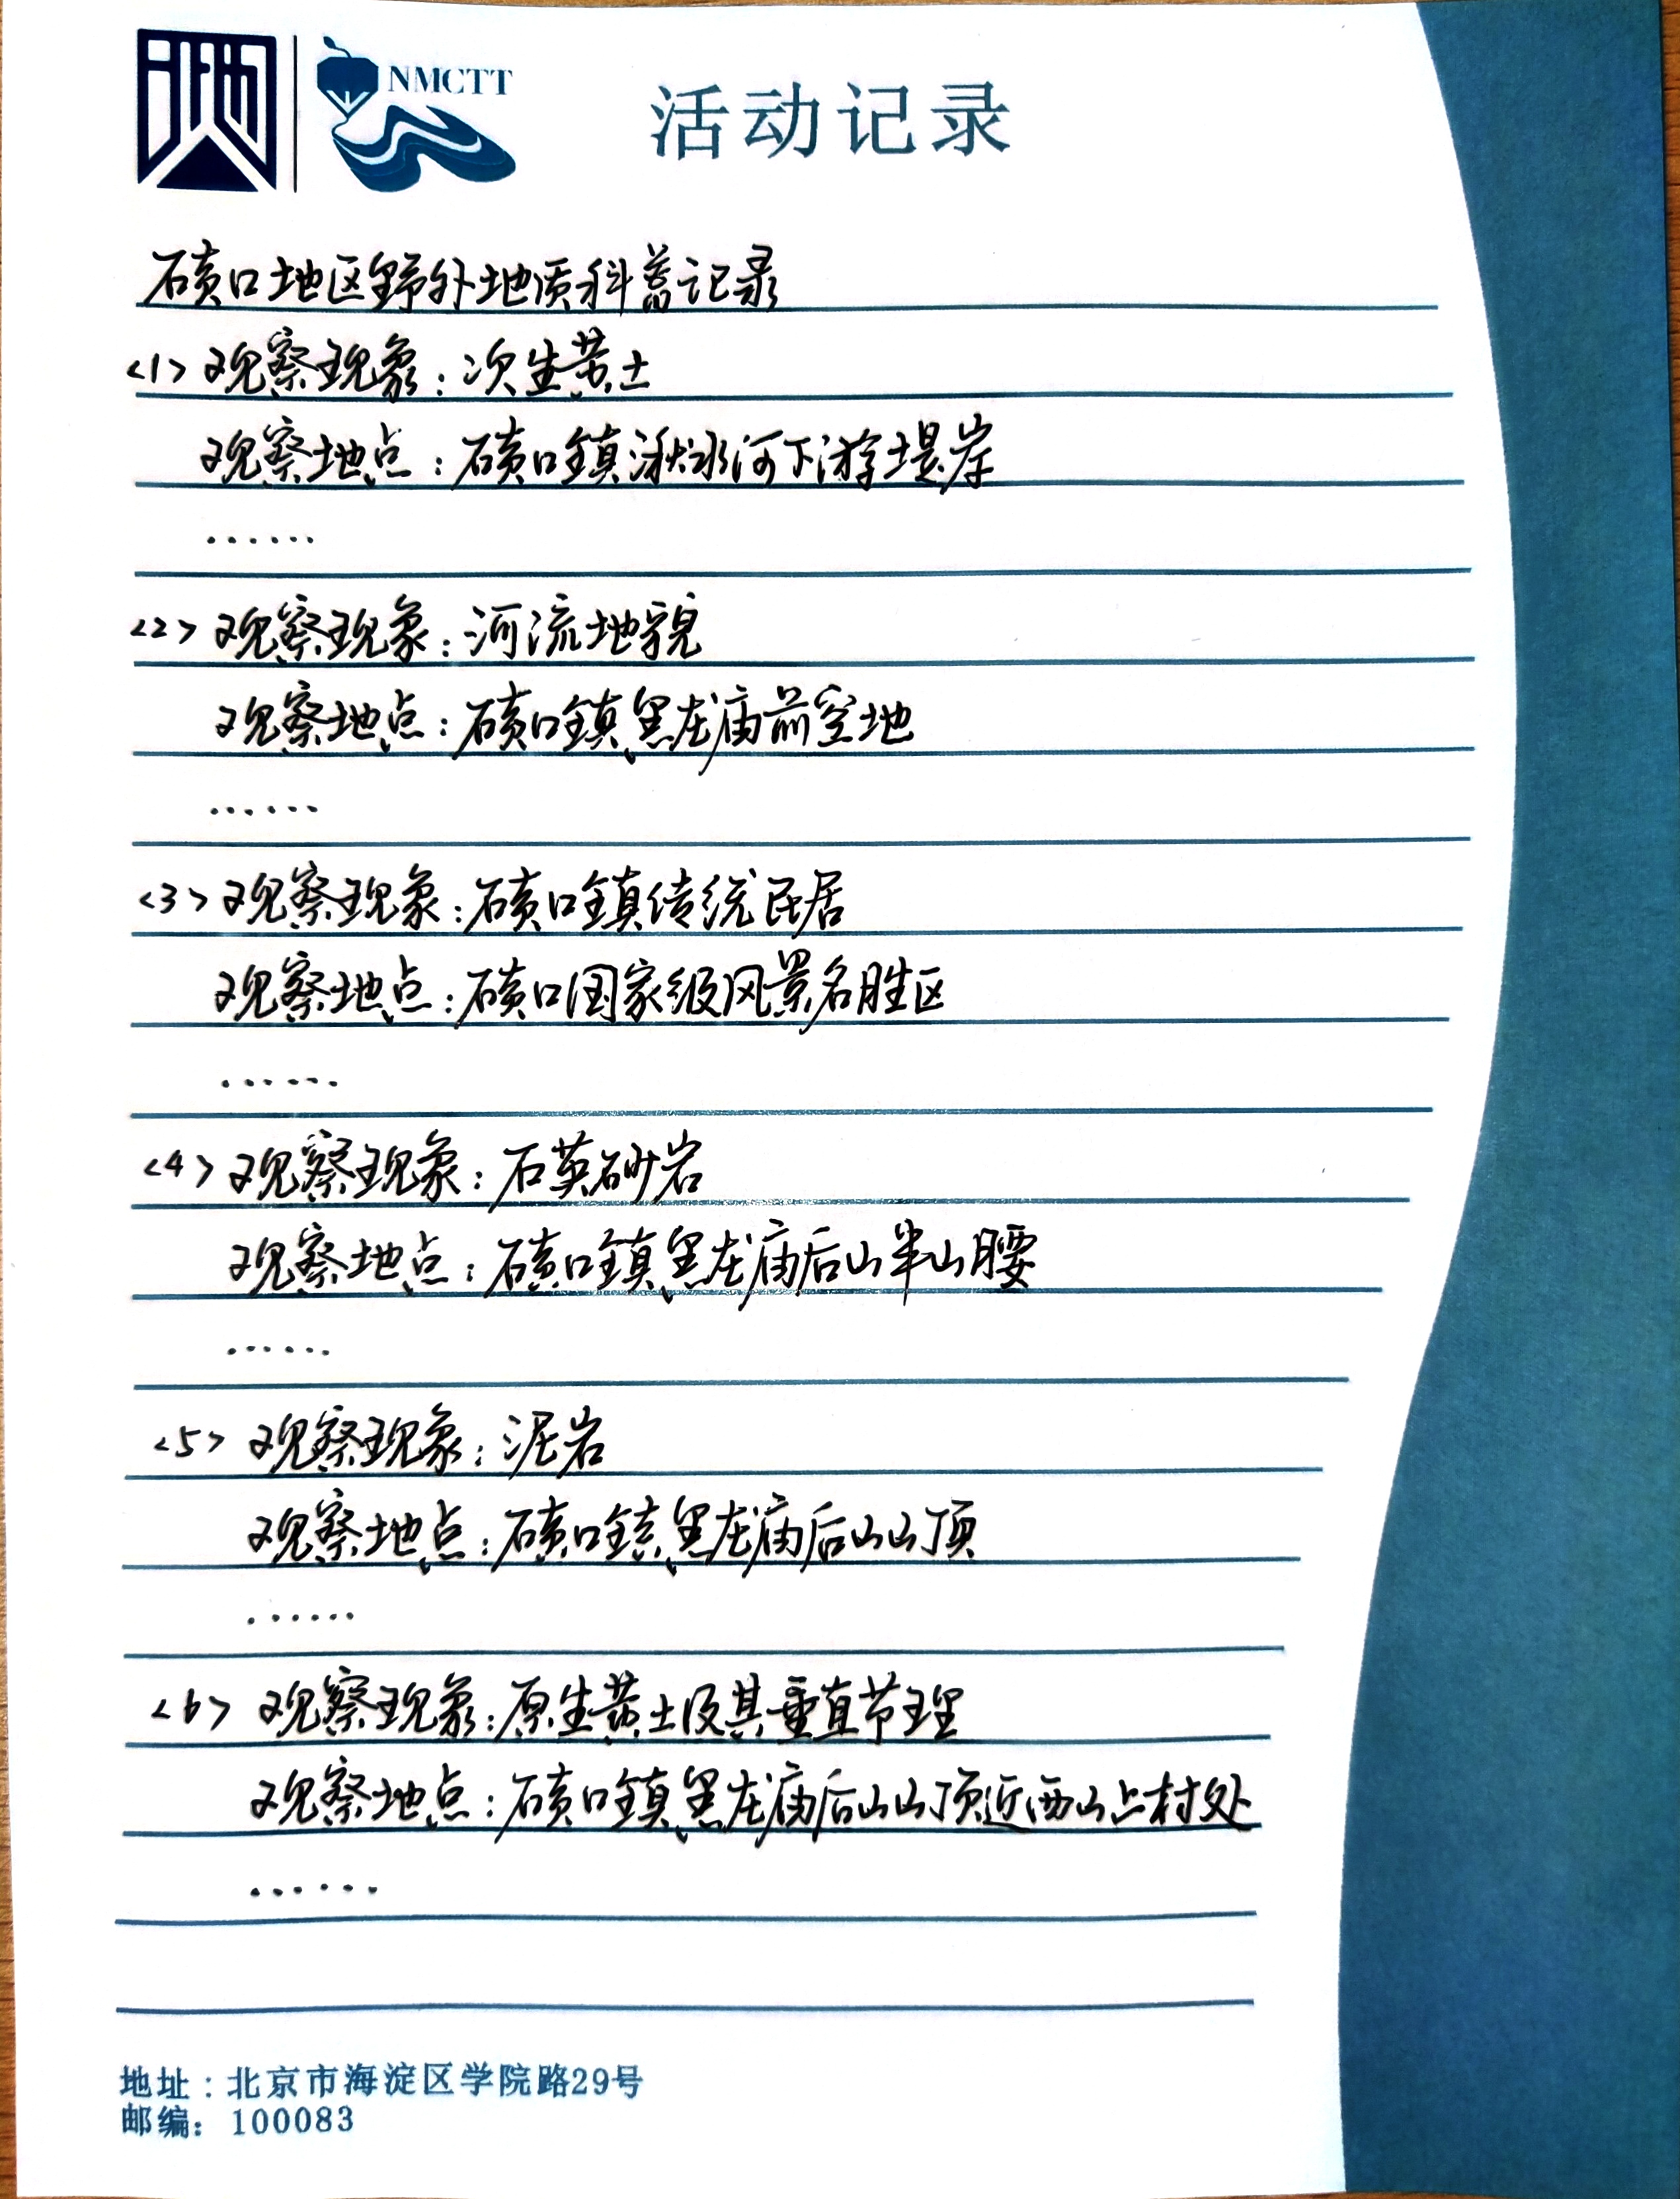 NMCTT
活动记录
碛口地区野外地质科普记录
<1> 观察现象：次生黄土
观察地点：碛口镇湫水河下游堤岸
……
<2> 观察现象：河流地貌
观察地点：碛口镇黑龙庙前空地
……
<3> 观察现象：碛口镇传统民居
观察地点：碛口国家级风景名胜区
……
<4> 观察现象：石英砂岩
观察地点：碛口镇黑龙庙后山半山腰
……
<5> 观察现象：泥岩
观察地点：碛口镇黑龙庙后山山顶
……
<6> 观察现象：原生黄土及其垂直节理
观察地点：碛口镇黑龙庙后山山顶近西山上村处
……
地址：北京市海淀区学院路29号
邮编：100083